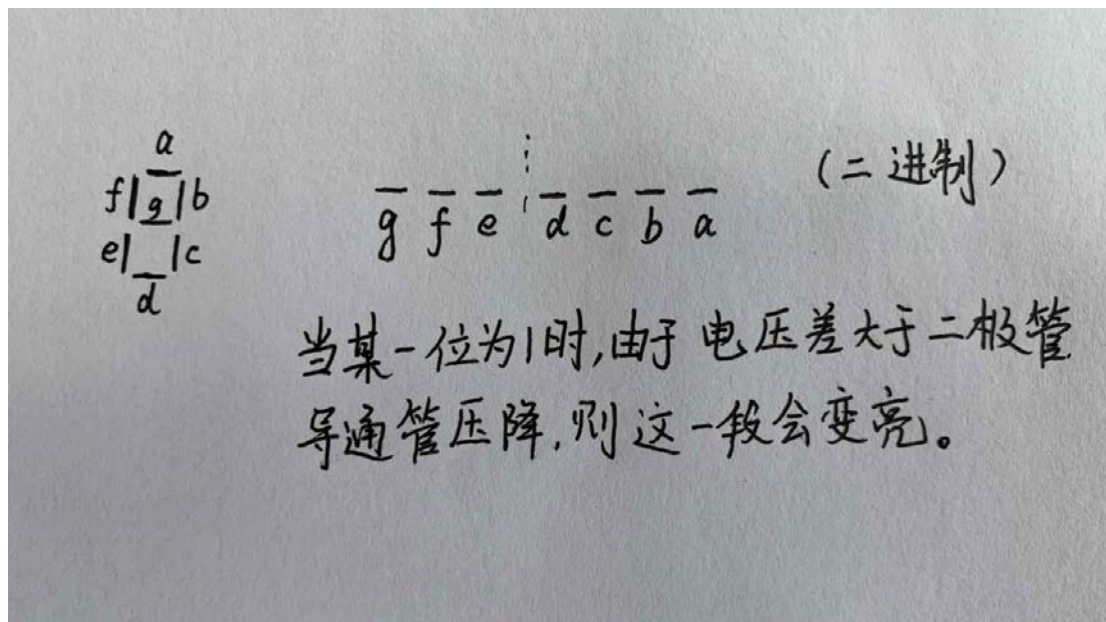 a
f g b
e c
d
g f e d c b a (二进制)
当某一位为1时,由于电压差大于二极管
导通管压降,则这一段会变亮。